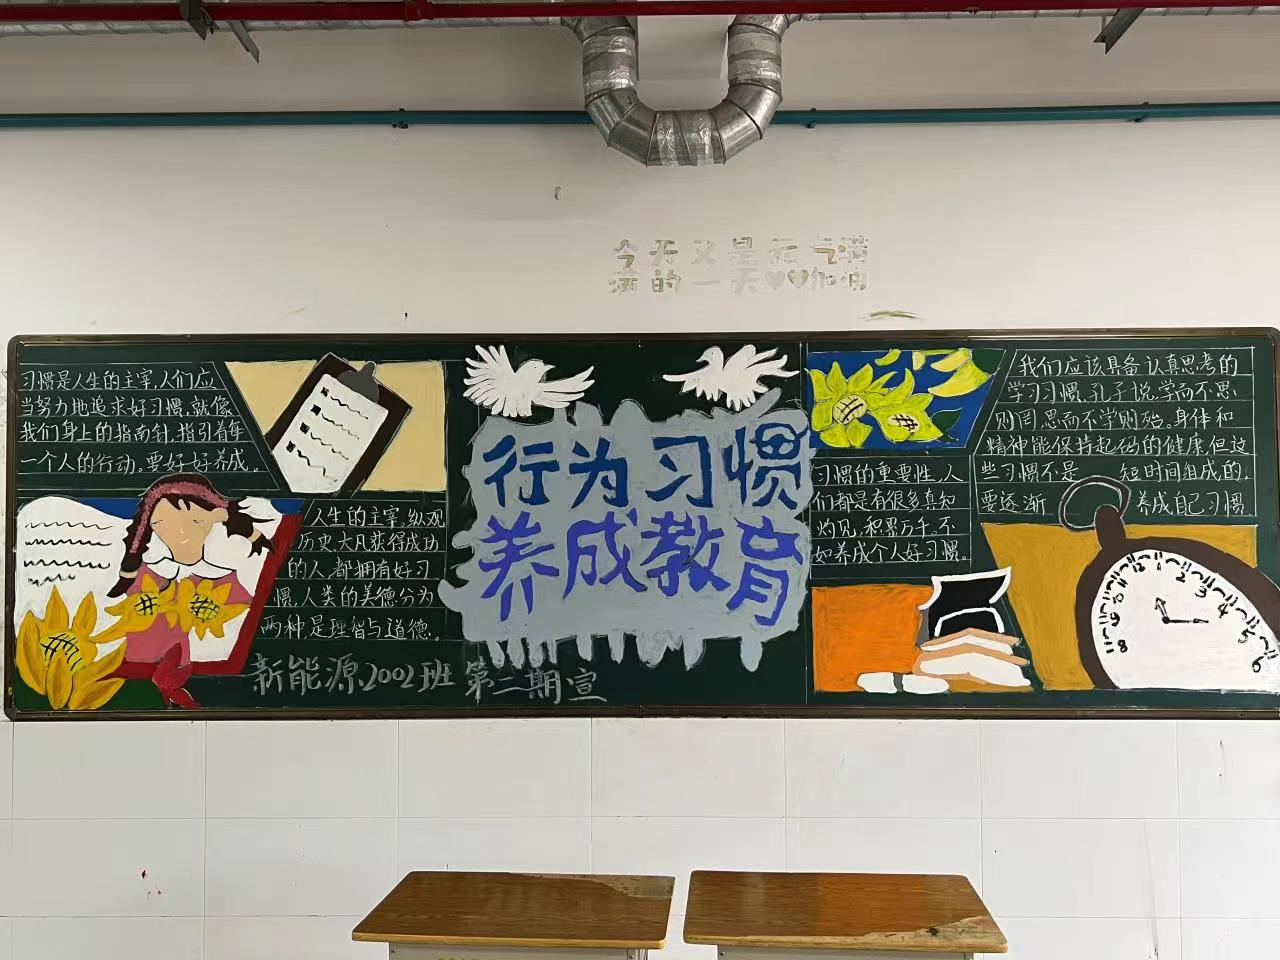 今天又是元气满
满的一天加油
习惯是人生的主宰,人们应
当努力地追求好习惯,就像
我们身上的指南针,指引着每
一个人的行动。要好好养成。
人生的主宰。纵观
历史,大凡获得成功
的人,都拥有好习
惯,人类的美德分为
两种是理智与道德。
新能源2002班 第二期宣
行为习惯
养成教育
习惯的重要性,人
们都是有很多真知
灼见,积累万千。不
如养成个人好习惯。
我们应该具备认真思考的
学习习惯,孔子说,学而不思
则罔,思而不学则殆。身体和
精神能保持起码的健康,但这
些习惯不是 短时间组成的,
要逐渐 养成自己习惯
8 9 10 11 12 1 2 3 4 5 6